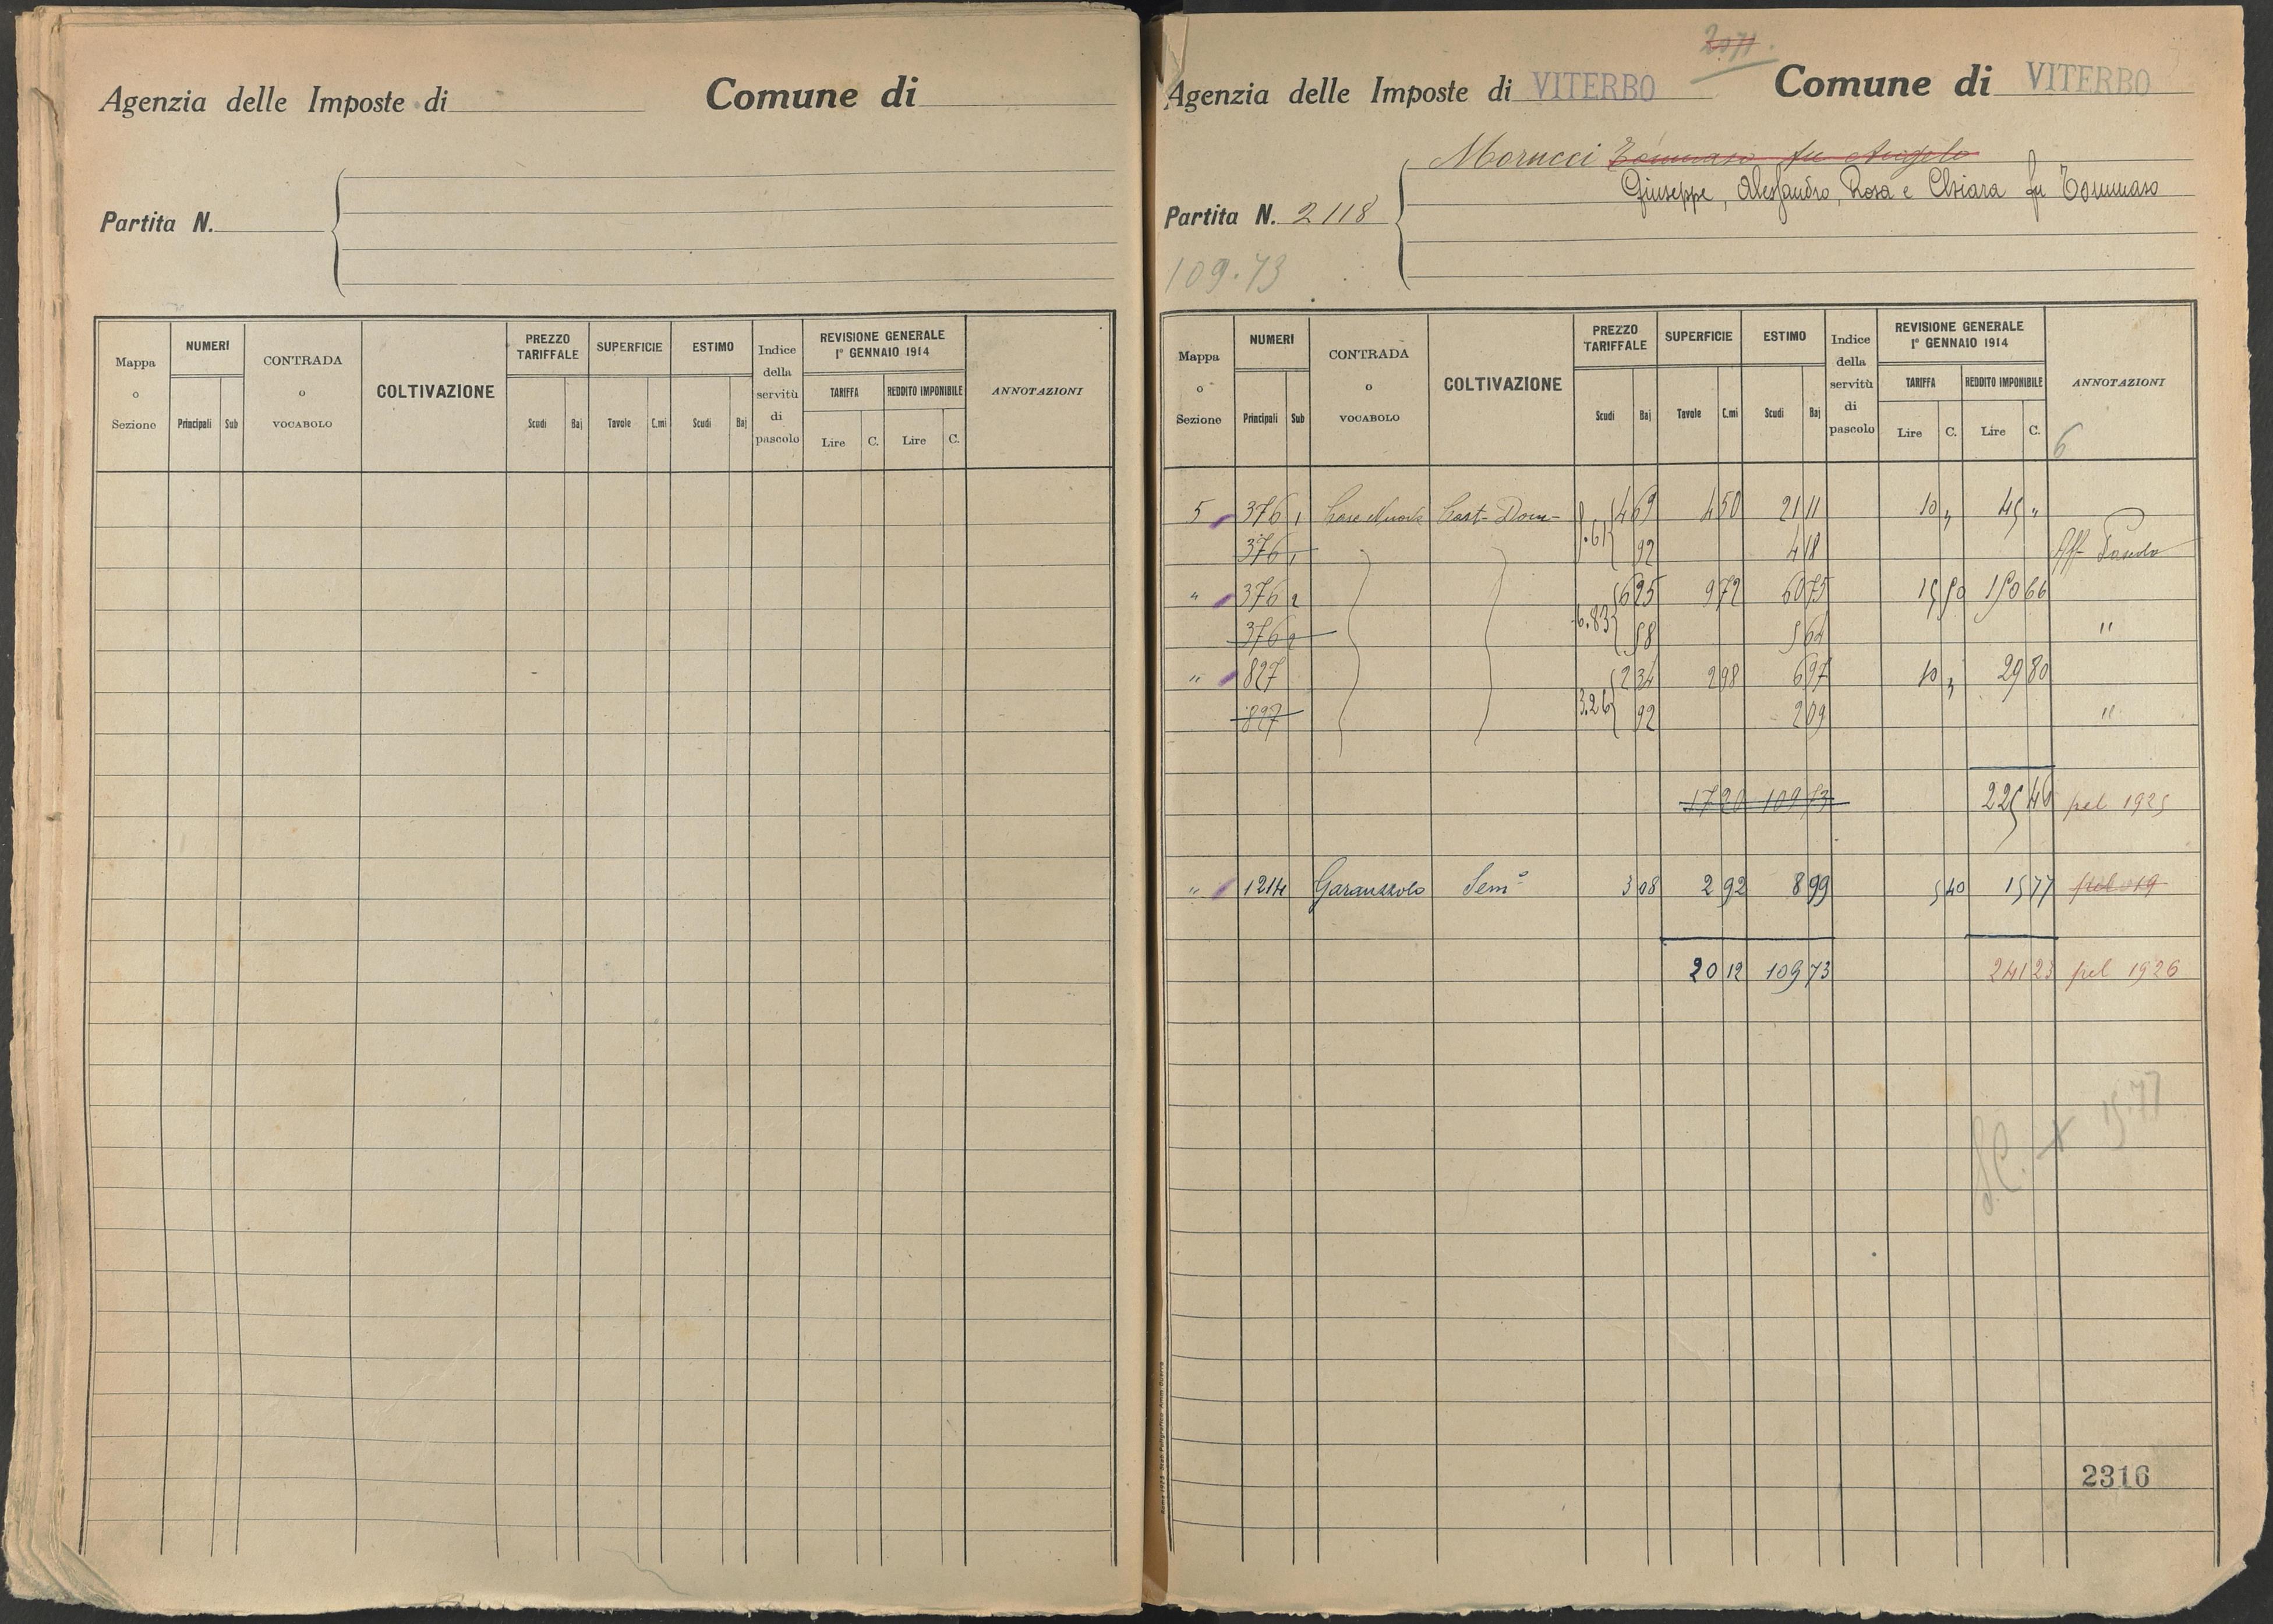 Agenzia delle Imposte di Comune di
Partita N.
Mappa o Sezione NUMERI Principali Sub CONTRADA o VOCABOLO COLTIVAZIONE PREZZO TARIFFALE Scudi Baj SUPERFICIE Tavole C.mi ESTIMO Scudi Baj Indice della servitù di pascolo REVISIONE GENERALE 1° GENNAIO 1914 TARIFFA Lire C. REDDITO IMPONIBILE Lire C. ANNOTAZIONI
2071.
Agenzia delle Imposte di VITERBO Comune di VITERBO
Morucci Tommaso fu Angelo
Giuseppe, Alessandro, Rosa e Chiara fu Tommaso
Partita N. 2118
109.73
Mappa o Sezione NUMERI Principali Sub CONTRADA o VOCABOLO COLTIVAZIONE PREZZO TARIFFALE Scudi Baj SUPERFICIE Tavole C.mi ESTIMO Scudi Baj Indice della servitù di pascolo REVISIONE GENERALE 1° GENNAIO 1914 TARIFFA Lire C. REDDITO IMPONIBILE Lire C. ANNOTAZIONI
6
5 376 1 Case Nuove Cast- Dom- 4 69 4 50 21 11 10 " 45 "
376 1 5.61 92 4 18 Aff- Pascolo
" 376 2 6 25 9 72 60 75 15 50 150 66
376 2 6.83 58 5 64 "
" 827 2 34 2 98 6 97 10 " 29 80
827 3.26 92 2 09 "
17 20 109 73 225 46 pel 1925
" 1214 Garauzzolo Sem° 3 08 2 92 8 99 5 40 15 77
20 12 109 73 241 23 pel 1926
S.C. + 15.77
2316